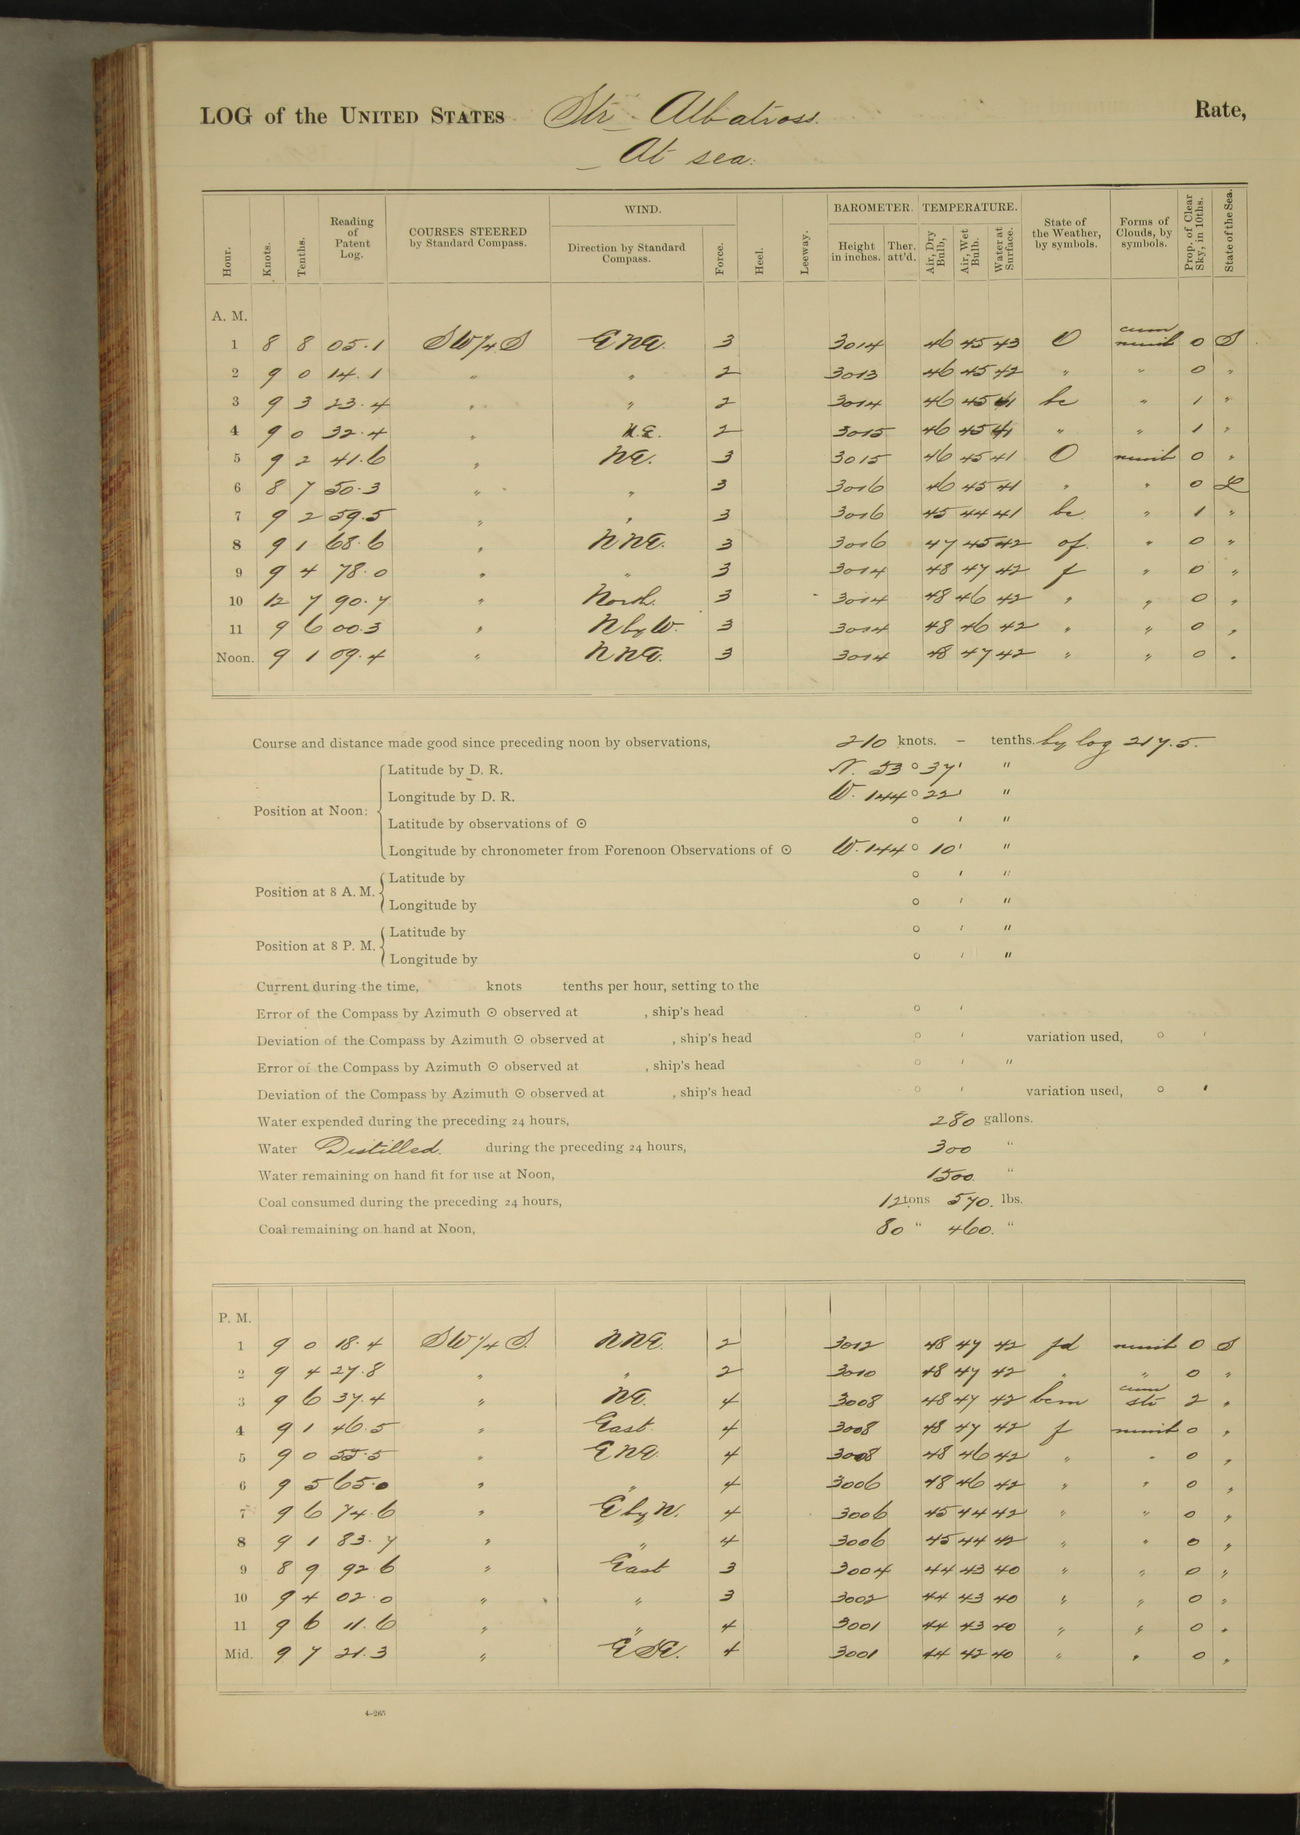 LOG of the UNITED STATES Str. Albatross. Rate,
At sea.
Hour. Knots. Tenths. Reading of Patent Log. COURSES STEERED by Standard Compass. WIND. Direction by Standard Compass. Force. Heel. Leeway. BAROMETER. Height in inches. Ther. att'd. TEMPERATURE. Air, Dry Bulb, Air, Wet Bulb. Water at Surface. State of the Weather, by symbols. Forms of Clouds, by symbols. Prop. of Clear Sky, in 10ths. State of the Sea.
A. M.
1 8 8 05.1 SW 1/4 S ENE. 3 3014 46 45 43 O cum nimb 0 S
2 9 0 14.1 " " 2 3013 46 45 42 " " 0 "
3 9 3 23.4 " " 2 3014 46 45 41 bc " 1 "
4 9 0 32.4 " N.E. 2 3015 46 45 41 " " 1 "
5 9 2 41.6 " NE. 3 3015 46 45 41 O nimb 0 "
6 8 7 50.3 " " 3 3016 46 45 41 " " 0 L
7 9 2 59.5 " " 3 3016 45 44 41 bc. " 1 "
8 9 1 68.6 " NNE. 3 3016 47 45 42 of. " 0 "
9 9 4 78.0 " " 3 3014 48 47 42 f " 0 "
10 12 7 90.7 " North. 3 3014 48 46 42 " " 0 "
11 9 6 00.3 " N by W. 3 3014 48 46 42 " " 0 "
Noon. 9 1 09.4 " NNE. 3 3014 48 47 42 " " 0 "
Course and distance made good since preceding noon by observations, 210 knots. – tenths. by log 217.5.
Position at Noon: Latitude by D. R. N. 53 ° 37 ' "
Longitude by D. R. W. 144 ° 22 ' "
Latitude by observations of ☉ ° ' "
Longitude by chronometer from Forenoon Observations of ☉ W. 144 ° 10 ' "
Position at 8 A. M. Latitude by ° ' "
Longitude by ° ' "
Position at 8 P. M. Latitude by ° ' "
Longitude by ° ' "
Current during the time, knots tenths per hour, setting to the
Error of the Compass by Azimuth ☉ observed at , ship's head ° '
Deviation of the Compass by Azimuth ☉ observed at , ship's head ° ' variation used, ° '
Error of the Compass by Azimuth ☉ observed at , ship's head ° ' "
Deviation of the Compass by Azimuth ☉ observed at , ship's head ° ' variation used, ° '
Water expended during the preceding 24 hours, 280 gallons.
Water Distilled. during the preceding 24 hours, 300 "
Water remaining on hand fit for use at Noon, 1500 "
Coal consumed during the preceding 24 hours, 12 tons 570. lbs.
Coal remaining on hand at Noon, 80 " 460. "
P. M.
1 9 0 18.4 SW 1/4 S. NNE. 2 3012 48 47 42 fd nimb 0 S
2 9 4 27.8 " " 2 3010 48 47 42 " " 0 "
3 9 6 37.4 " NE. 4 3008 48 47 42 bcm cum str 2 "
4 9 1 46.5 " East. 4 3008 48 47 42 f nimb 0 "
5 9 0 55.5 " ENE. 4 3008 48 46 42 " " 0 "
6 9 5 65.0 " " 4 3006 48 46 42 " " 0 "
7 9 6 74.6 " E by N. 4 3006 45 44 42 " " 0 "
8 9 1 83.7 " " 4 3006 45 44 42 " " 0 "
9 8 9 92.6 " East 3 3004 44 43 40 " " 0 "
10 9 4 02.0 " " 3 3002 44 43 40 " " 0 "
11 9 6 11.6 " " 4 3001 44 43 40 " " 0 "
Mid. 9 7 21.3 " ESE. 4 3001 44 42 40 " " 0 "
4–265